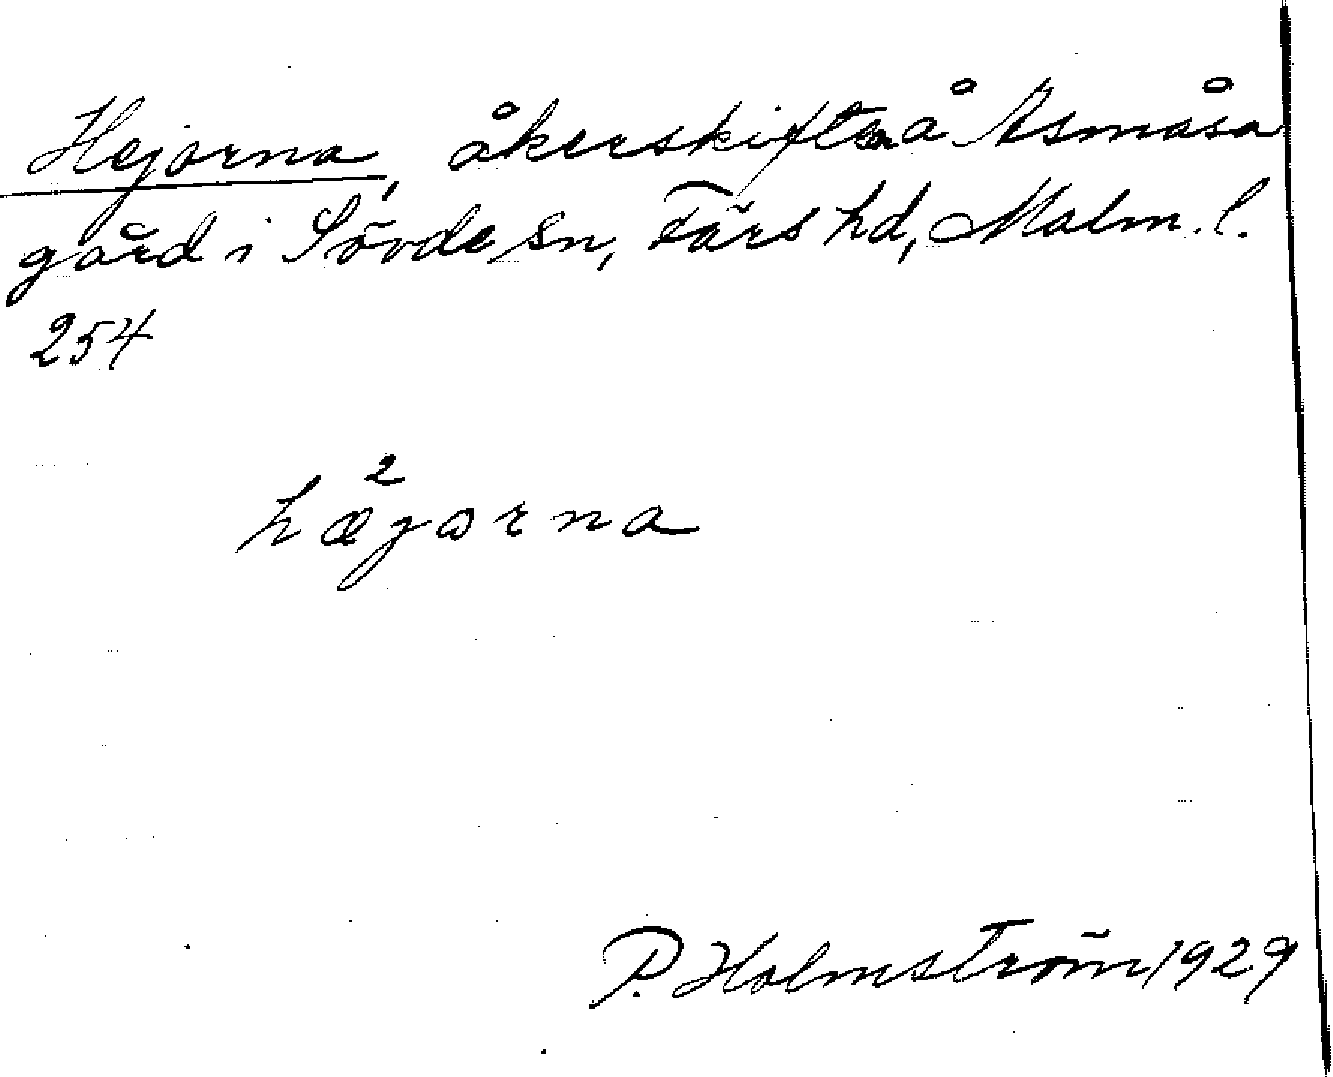 Hejarna, åkerskiften å Åsmåsa
gård i Sövde sn, Färs hd, Malm. l.
254
hæ²jarna
P. Holmström 1929